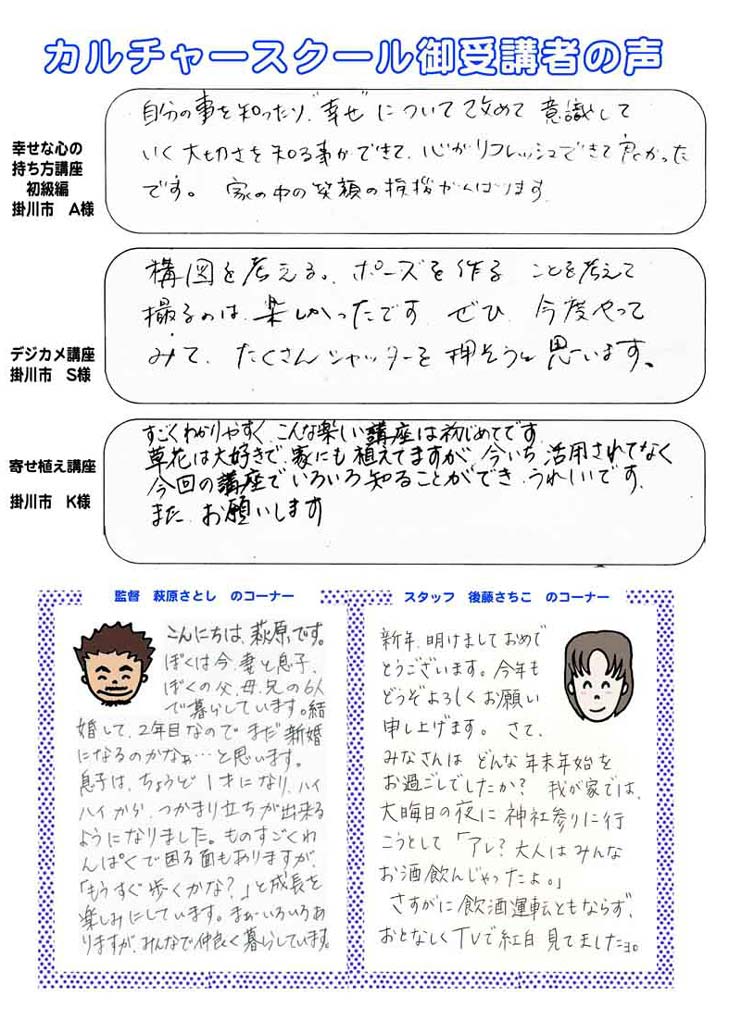 カルチャースクール御受講者の声
幸せな心の
持ち方講座
初級編
掛川市 A様
自分の事を知ったり、"幸せ"について改めて意識して
いく大切さを知る事ができて、心がリフレッシュできて良かった
です。家の中の笑顔の挨拶がんばります
デジカメ講座
掛川市 S様
構図を考える。ポーズを作る ことを考えて
撮るのは、楽しかったです ぜひ、今度やって
みて、たくさんシャッターを押そうと思います。
寄せ植え講座
掛川市 K様
すごくわかりやすく、こんな楽しい講座は初じめてです
草花は大好きで、家にも植えてますが、今いち活用されてなく
今回の講座でいろいろ知ることができ、うれしいです。
また、お願いします
監督 萩原さとし のコーナー
こんにちは、萩原です。
ぼくは今、妻と息子、
ぼくの父、母、兄の6人
で暮らしています。結
婚して、2年目なのでまだ新婚
になるのかなぁ…と思います。
息子は、ちょうど1才になり、ハイ
ハイから、つかまり立ちが出来る
ようになりました。ものすごくわ
んぱくで困る面もありますが、
「もうすぐ歩くかな?」と成長を
楽しみにしています。まぁいろいろあ
りますが、みんなで仲良く暮らしています。
スタッフ 後藤さちこ のコーナー
新年、明けましておめで
とうございます。今年も
どうぞよろしくお願い
申し上げます。さて、
みなさんは どんな年末年始を
お過ごしでしたか? 我が家では、
大晦日の夜に神社参りに行
こうとして「アレ?大人はみんな
お酒飲んじゃったよ。」
さすがに飲酒運転ともならず、
おとなしくTVで紅白見てましたョ。